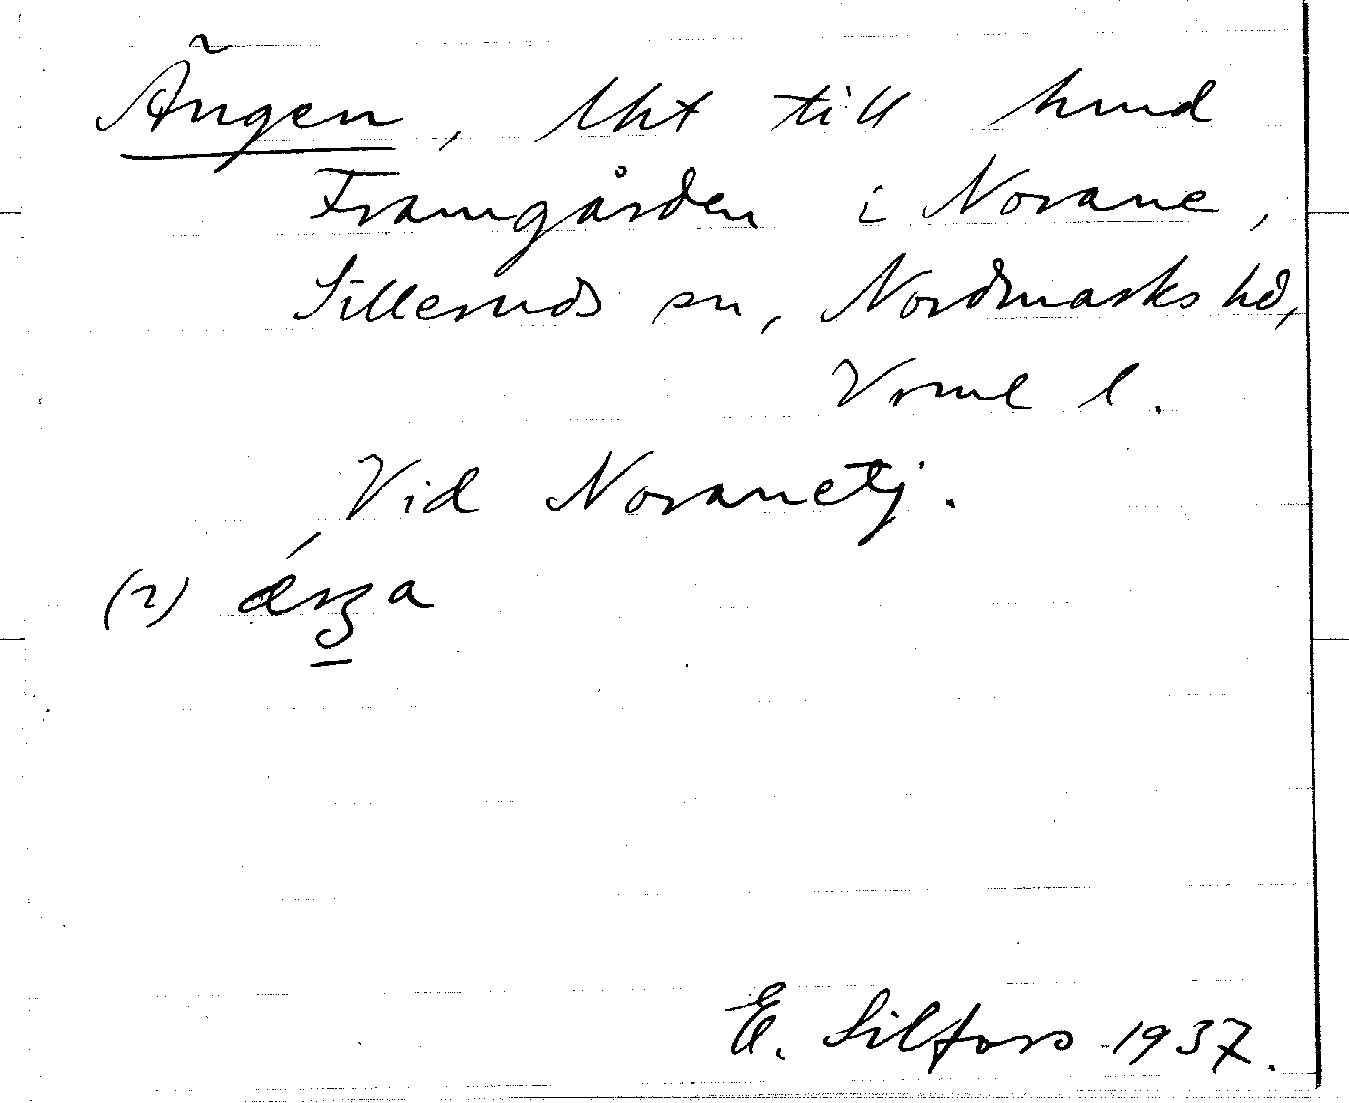 Ängen, lht till hmd
Framgården i Norane,
Silleruds sn, Nordmarks hd,
Vrml l.
Vid Noranetj.
(2)
E. Silfors 1937.